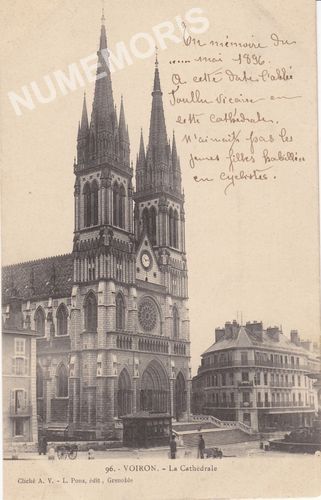 NUMEMORIS
En mémoire du
mai 1896.
A cette date l'abbé
vicaire en
cette cathédrale.
N'aimait pas les
jeunes filles habillées
en cyclistes.
96. - VOIRON. - La Cathédrale
Cliché A. V. - L. Pons, édit., Grenoble